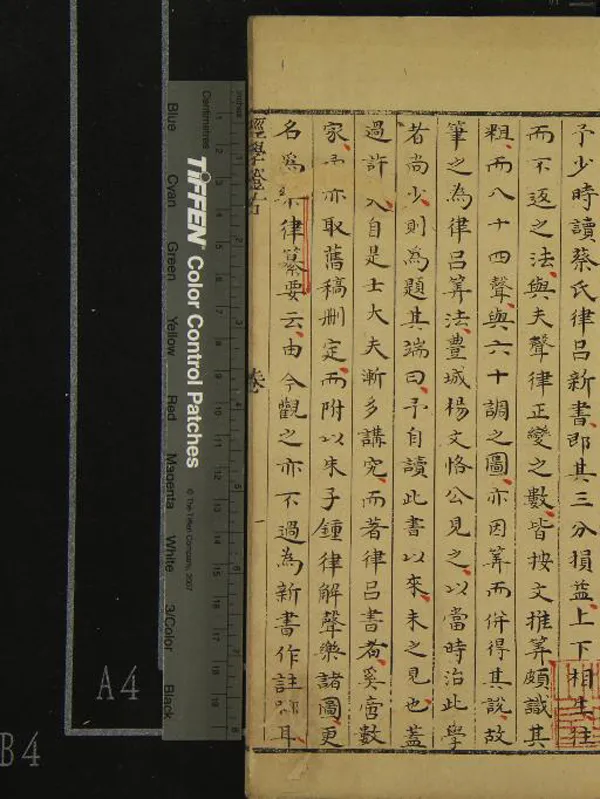 予少時讀蔡氏律呂新書即其三分損益上下相生往
而不返之法與夫聲律正變之數皆按文推筭頗識其
粗而八十四聲與六十調之圖亦因筭而併得其說故
筆之為律呂筭法豊城楊文恪公見之以當時治此學
者尚少則為題其端曰予自讀此書以來未之見也葢
過許入自是士大夫漸多講究而著律呂書者奚啻數
家予亦取舊稿刪定而附以朱子鍾律解聲樂諸圖更
名為律纂要云由今觀之亦不過為新書作註耳
經學
卷
一
inches
Centimetres
TIFFEN Color Control Patches
© The Tiffen Company, 2007
Blue
Cyan
Green
Yellow
Red
Magenta
White
3/Color
Black
A4
B4